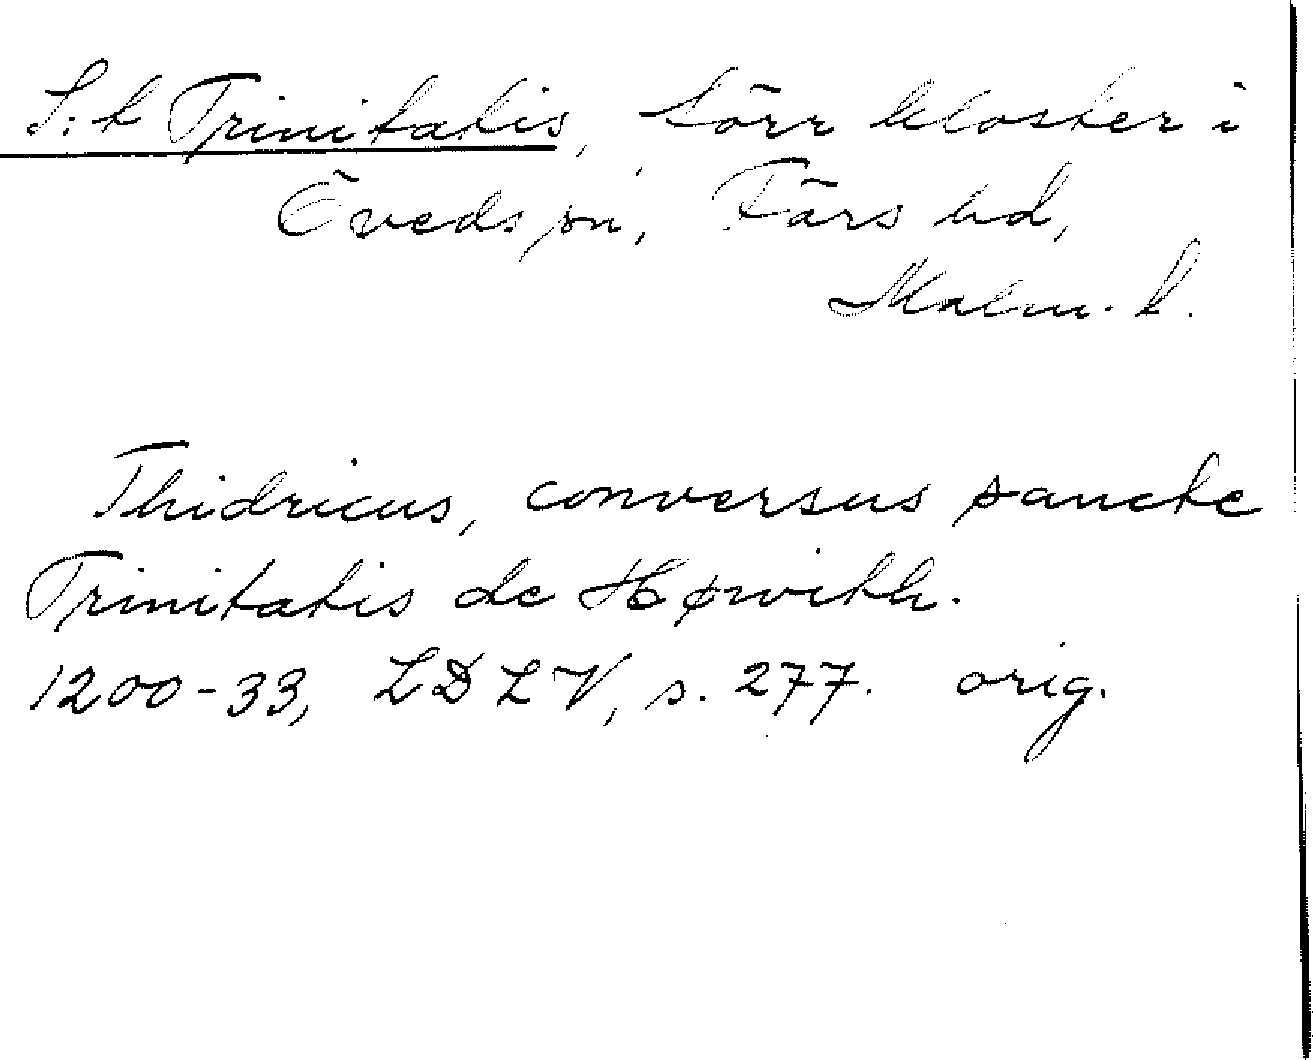 S:t Trinitatis, förr kloster i
Öveds sn, Färs hd,
Malm. l.
Thidricus, conversus sancte
Trinitatis de Høwith.
1200-33, LDLV, s. 277. orig.